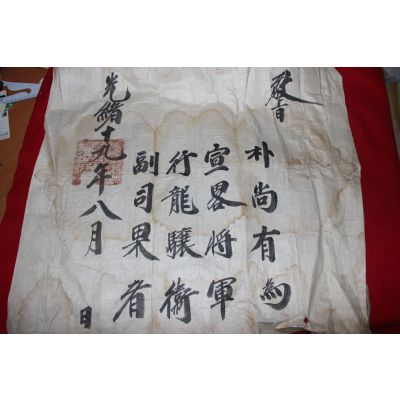 敎旨
朴尙有爲
宣畧將軍
行龍驤衛
副司果者
光緖十九年八月 日